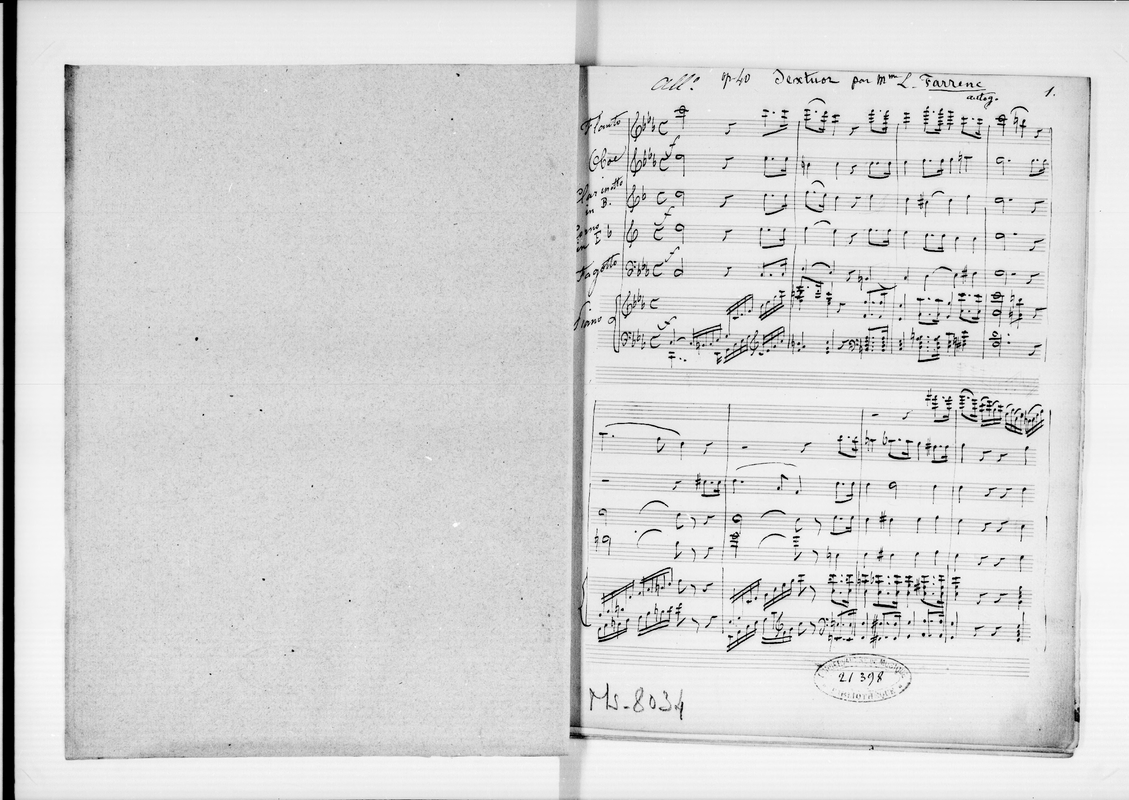 all.° op. 40 Sextuor par Mme L. Farrenc
autog.
1.
Flauto
Oboe
Clarinetto
in B.
Corno
in E b
Fagotto
Piano
f
f
f
f
f
21398
Ms-8034